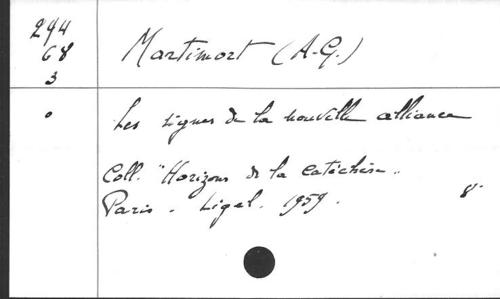 294
68
3
Martimort (A.-G.)
Les signes de la nouvelle alliance
Coll. "Horizons de la catéchèse".
Paris. Ligel. 1959. 8°